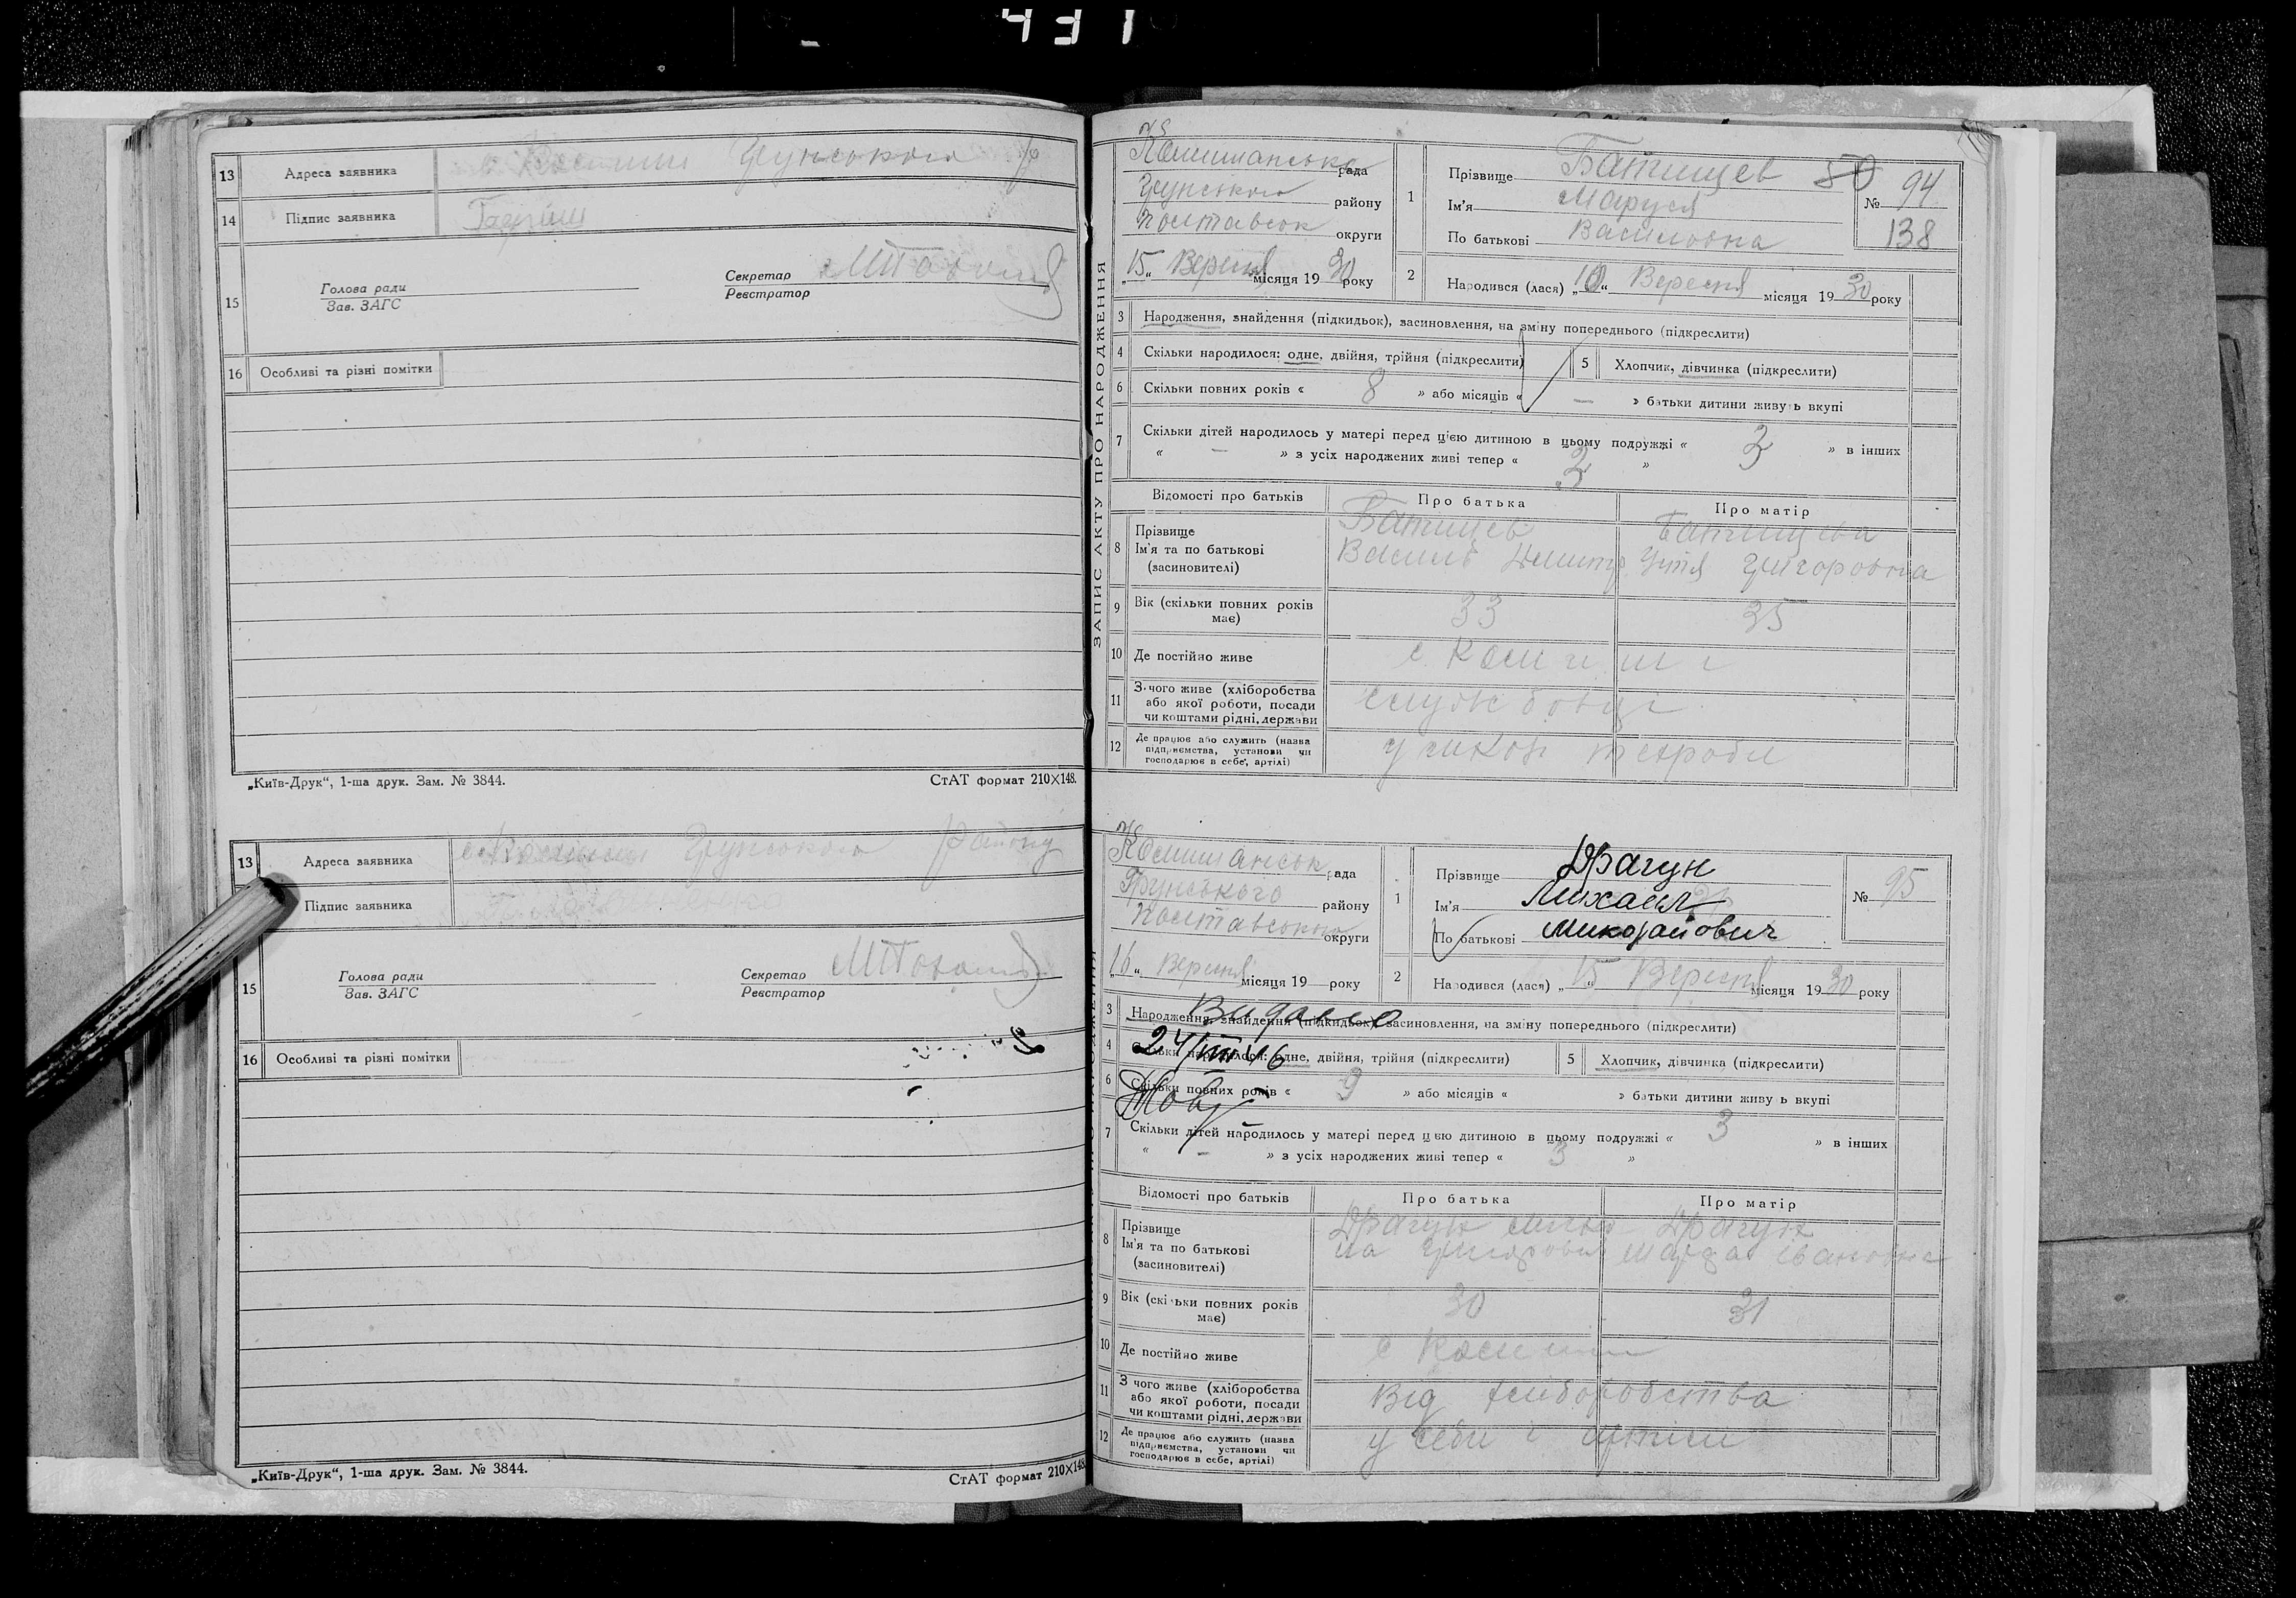 431
13 Адреса заявника Грунського р
14 Підпис заявника
15 Голова ради Зав. ЗАГС Секретар Реєстратор
16 Особливі та різні помітки
„Київ-Друк“, 1-ша друк. Зам. № 3844. СтАТ формат 210×148.
13 Адреса заявника Грунського району
Підпис заявника
15 Голова ради Зав. ЗАГС Секретар Реєстратор
16 Особливі та різні помітки
„Київ-Друк“, 1-ша друк. Зам. № 3844. СтАТ формат 210×148.
ЗАПИС АКТУ ПРО НАРОДЖЕННЯ
Комишанська рада
Грунського району
Полтавськ округи
„15“ Вересня місяця 1930 року
1 Прізвище Батищев 80
Ім'я Маруся
По батькові Василовна
№ 94
138
2 Народився (лася) „10“ Вересня місяця 1930 року
3 Народження, знайдення (підкидьок), засиновлення, на зміну попереднього (підкреслити)
4 Скільки народилося: одне, двійня, трійня (підкреслити) 5 Хлопчик, дівчинка (підкреслити)
6 Скільки повних років « 8 » або місяців « — » батьки дитини живуть вкупі
7 Скільки дітей народилось у матері перед цією дитиною в цьому подружжі « 3 » в інших
« — » з усіх народжених живі тепер « 3 »
Відомості про батьків Про батька Про матір
8 Прізвище Батищев Батищева
Ім'я та по батькові Василь Григоровна
(засиновителі)
9 Вік (скільки повних років має) 33 35
10 Де постійно живе с Комиші
11 З чого живе (хліборобства або якої роботи, посади чи коштами рідні, держави службовці
12 Де працює або служить (назва підприємства, установи чи господарює в себе, артілі)
Комишанськ рада
Грунського району
округи
„16“ Вересня місяця 19 року
1 Прізвище Драгун
Ім'я Михаил
По батькові Миколайович
№ 95
2 Народився (лася) „15“ Вересня місяця 1930 року
3 Народження, знайдення (підкидьок), засиновлення, на зміну попереднього (підкреслити)
Видано
4 Скільки народилося: одне, двійня, трійня (підкреслити) 5 Хлопчик, дівчинка (підкреслити)
24/III 46
6 Скільки повних років « 9 » або місяців « » батьки дитини живуть вкупі
7 Скільки дітей народилось у матері перед цією дитиною в цьому подружжі « 3 » в інших
« — » з усіх народжених живі тепер « 3 »
Відомості про батьків Про батька Про матір
8 Прізвище Драгун Драгун
Ім'я та по батькові Івановна
(засиновителі)
9 Вік (скільки повних років має) 30 31
10 Де постійно живе с
11 З чого живе (хліборобства або якої роботи, посади чи коштами рідні, держави Від хліборобства
12 Де працює або служить (назва підприємства, установи чи господарює в себе, артілі) у себе